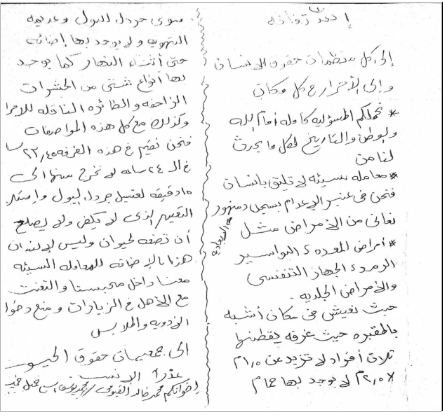 إلى كل منظمات حقوق الإنسان
وإلى الأحرار في كل مكان
* نحملكم المسؤلية كاملة أمام الله
والوطن والتاريخ لكل ما يحدث
لنا من
* معاملة سيئة لا تليق بإنسان
فنحن في عنبر الإعدام بسجن دمنهور
نعاني من الأمراض مثل
* أمراض المعدة، البواسير
الرمد، الجهاز التنفسي
والأمراض الجلدية.
حيث نعيش في مكان أشبه
بالمقبرة حيث غرفة يقطنها
ثلاث أفراد لا تزيد عن
لا يوجد بها حمام
سوى جردل للبول وعديمة
التهوية ولا يوجد بها إضائة
حتى أثناء النهار كما يوجد
بها أنواع شتى من الحشرات
الزاحفة والطائرة الناقلة للأمراض
وكذلك مع كل هذه المواصفات
فنحن نقيم في هذه الغرفة ٢٣,٤٥
في الـ ٢٤ ساعة لا نخرج منها إلى
١٥ دقيقة لغسيل جردل البول
الذي لا يكفي ولا يصلح
أن تضعه لحيوان وليس لإنسان
هذا بالإضافة للمعاملة السيئة
معنا داخل محبسنا والتعنت
مع الأهل في الزيارات ومنع دخول
الأدوية والملابس
إلى جمعيات حقوق الحيوان
عذرا الإنسان
إخوانكم محمد خالد الفيومي